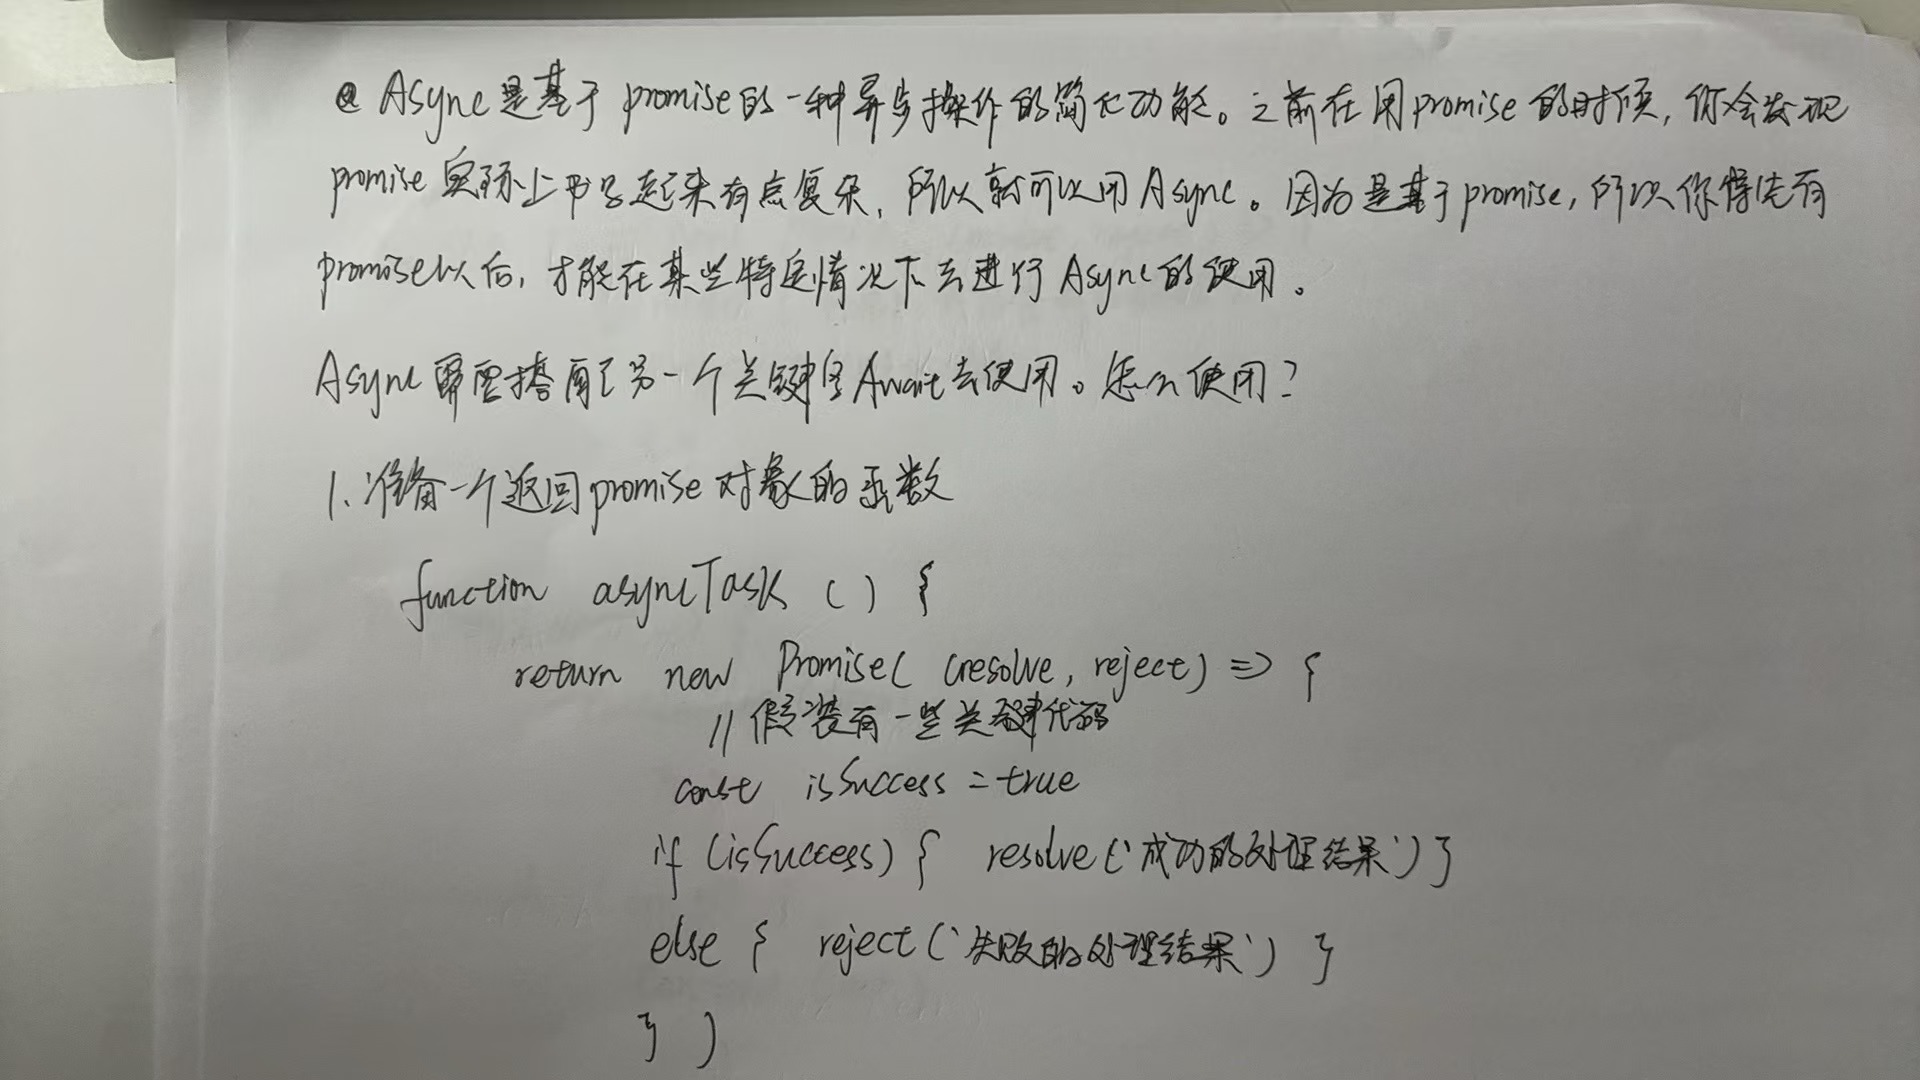 @ Async是基于promise的一种异步操作的简化功能。之前在用promise的时候,你会发现
promise实际上书写起来有点复杂,所以就可以用Async。因为是基于promise,所以你得先有
promise以后,才能在某些特定情况下去进行Async的使用。
Async需要搭配了另一个关键字Await去使用。怎么使用?
1、准备一个返回promise对象的函数
function asyncTask () {
return new Promise( (resolve, reject) => {
// 假装有一些关键代码
const isSuccess = true
if (isSuccess) { resolve('成功的处理结果') }
else { reject('失败的处理结果') }
} )